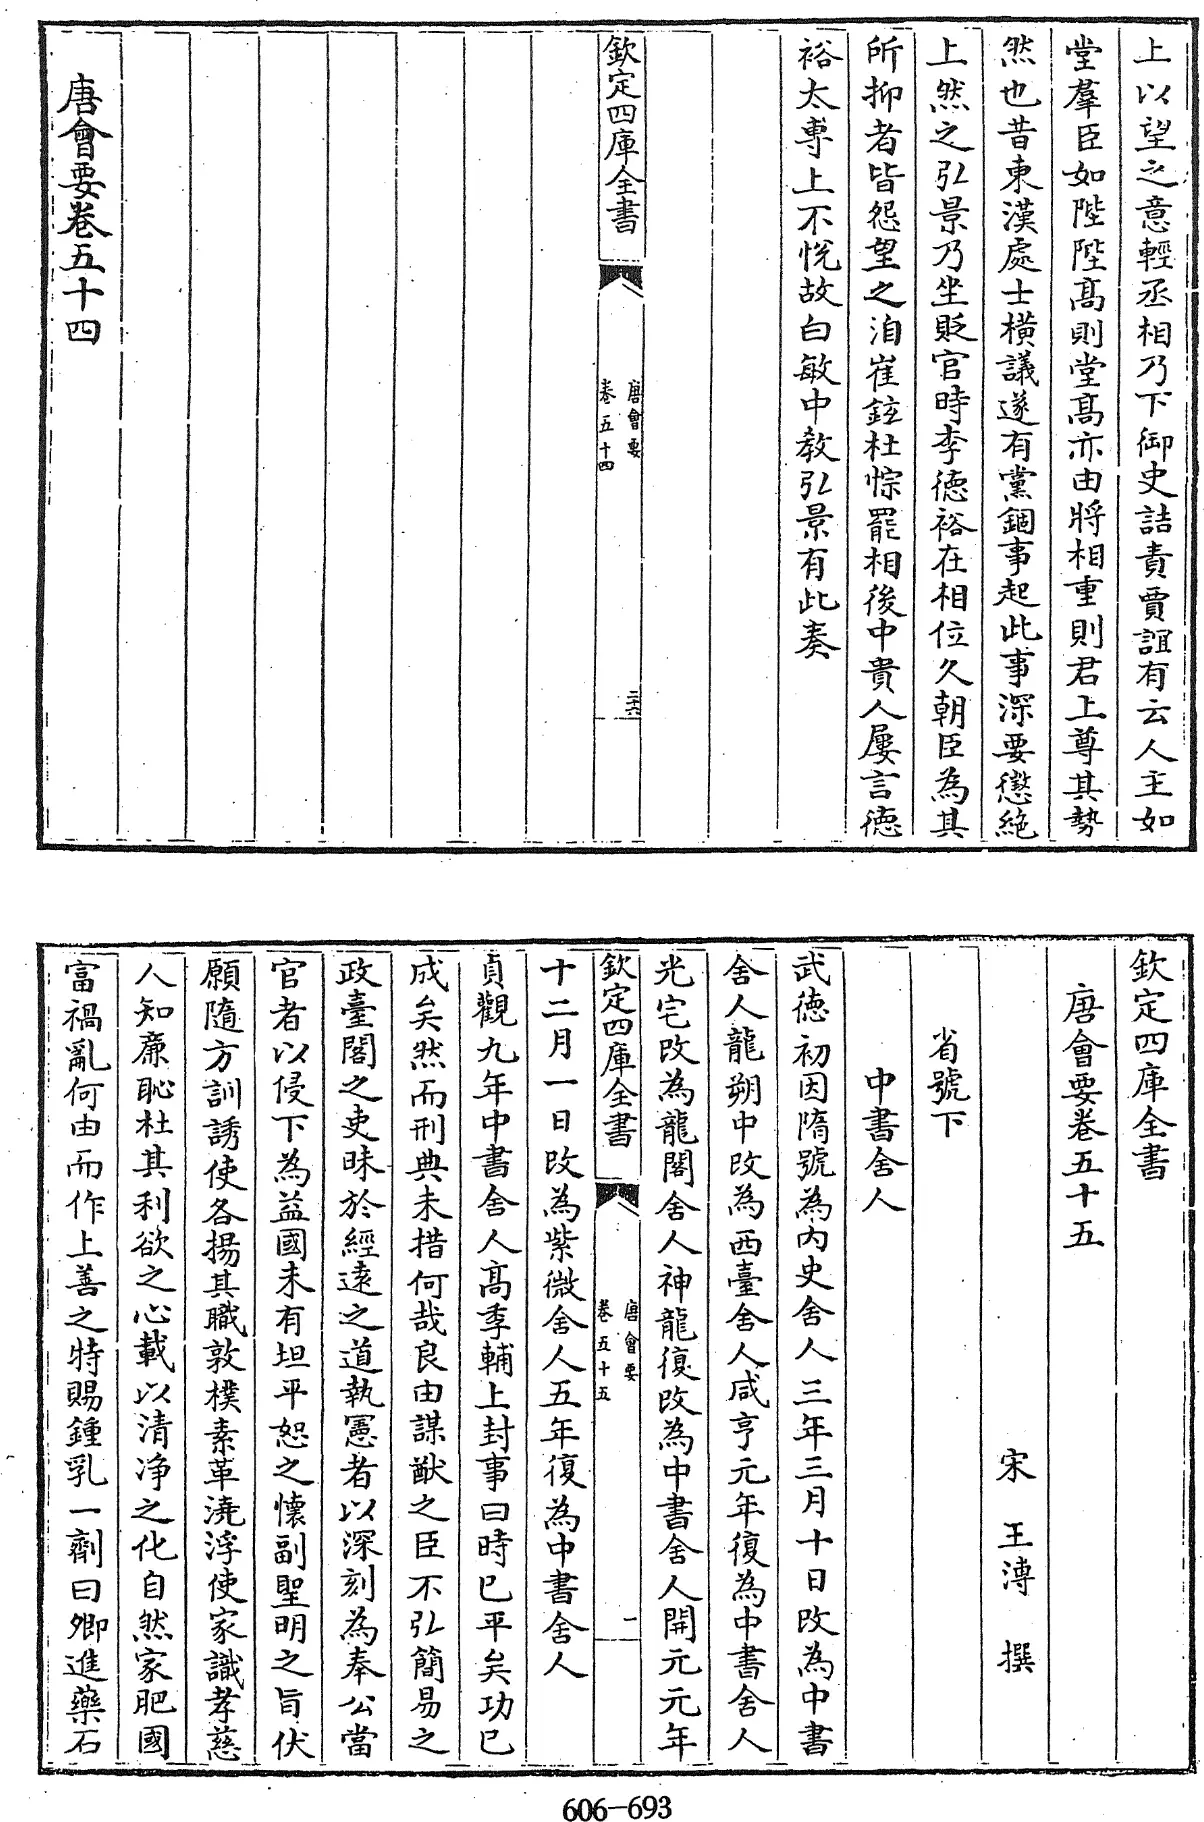 上以望之意輕丞相乃下御史詰責賈誼有云人主如
堂羣臣如陛陛髙則堂髙亦由將相重則君上尊其勢
然也昔東漢處士橫議遂有黨錮事起此事深要懲絶
上然之弘景乃坐貶官時李德裕在相位久朝臣為其
所抑者皆怨望之洎崔鉉杜悰罷相後中貴人屢言德
裕太専上不悅故白敏中教弘景有此奏
欽定四庫全書
唐會要
卷五十四
二十六
唐會要卷五十四
欽定四庫全書
唐會要卷五十五
宋 王溥 撰
省號下
中書舍人
武德初因隋號為內史舍人三年三月十日改為中書
舍人龍朔中改為西臺舍人咸亨元年復為中書舍人
光宅改為龍閣舍人神龍復改為中書舍人開元元年
欽定四庫全書
唐會要
卷五十五
一
十二月一日改為紫微舍人五年復為中書舍人
貞觀九年中書舍人髙季輔上封事曰時已平矣功已
成矣然而刑典未措何哉良由謀猷之臣不弘簡易之
政臺閣之吏昧於經遠之道執憲者以深刻為奉公當
官者以侵下為益國未有坦平恕之懷副聖明之旨伏
願隨方訓誘使各揚其職敦樸素革澆浮使家識孝慈
人知廉恥杜其利欲之心載以清淨之化自然家肥國
富禍亂何由而作上善之特賜鍾乳一劑曰卿進藥石
606-693